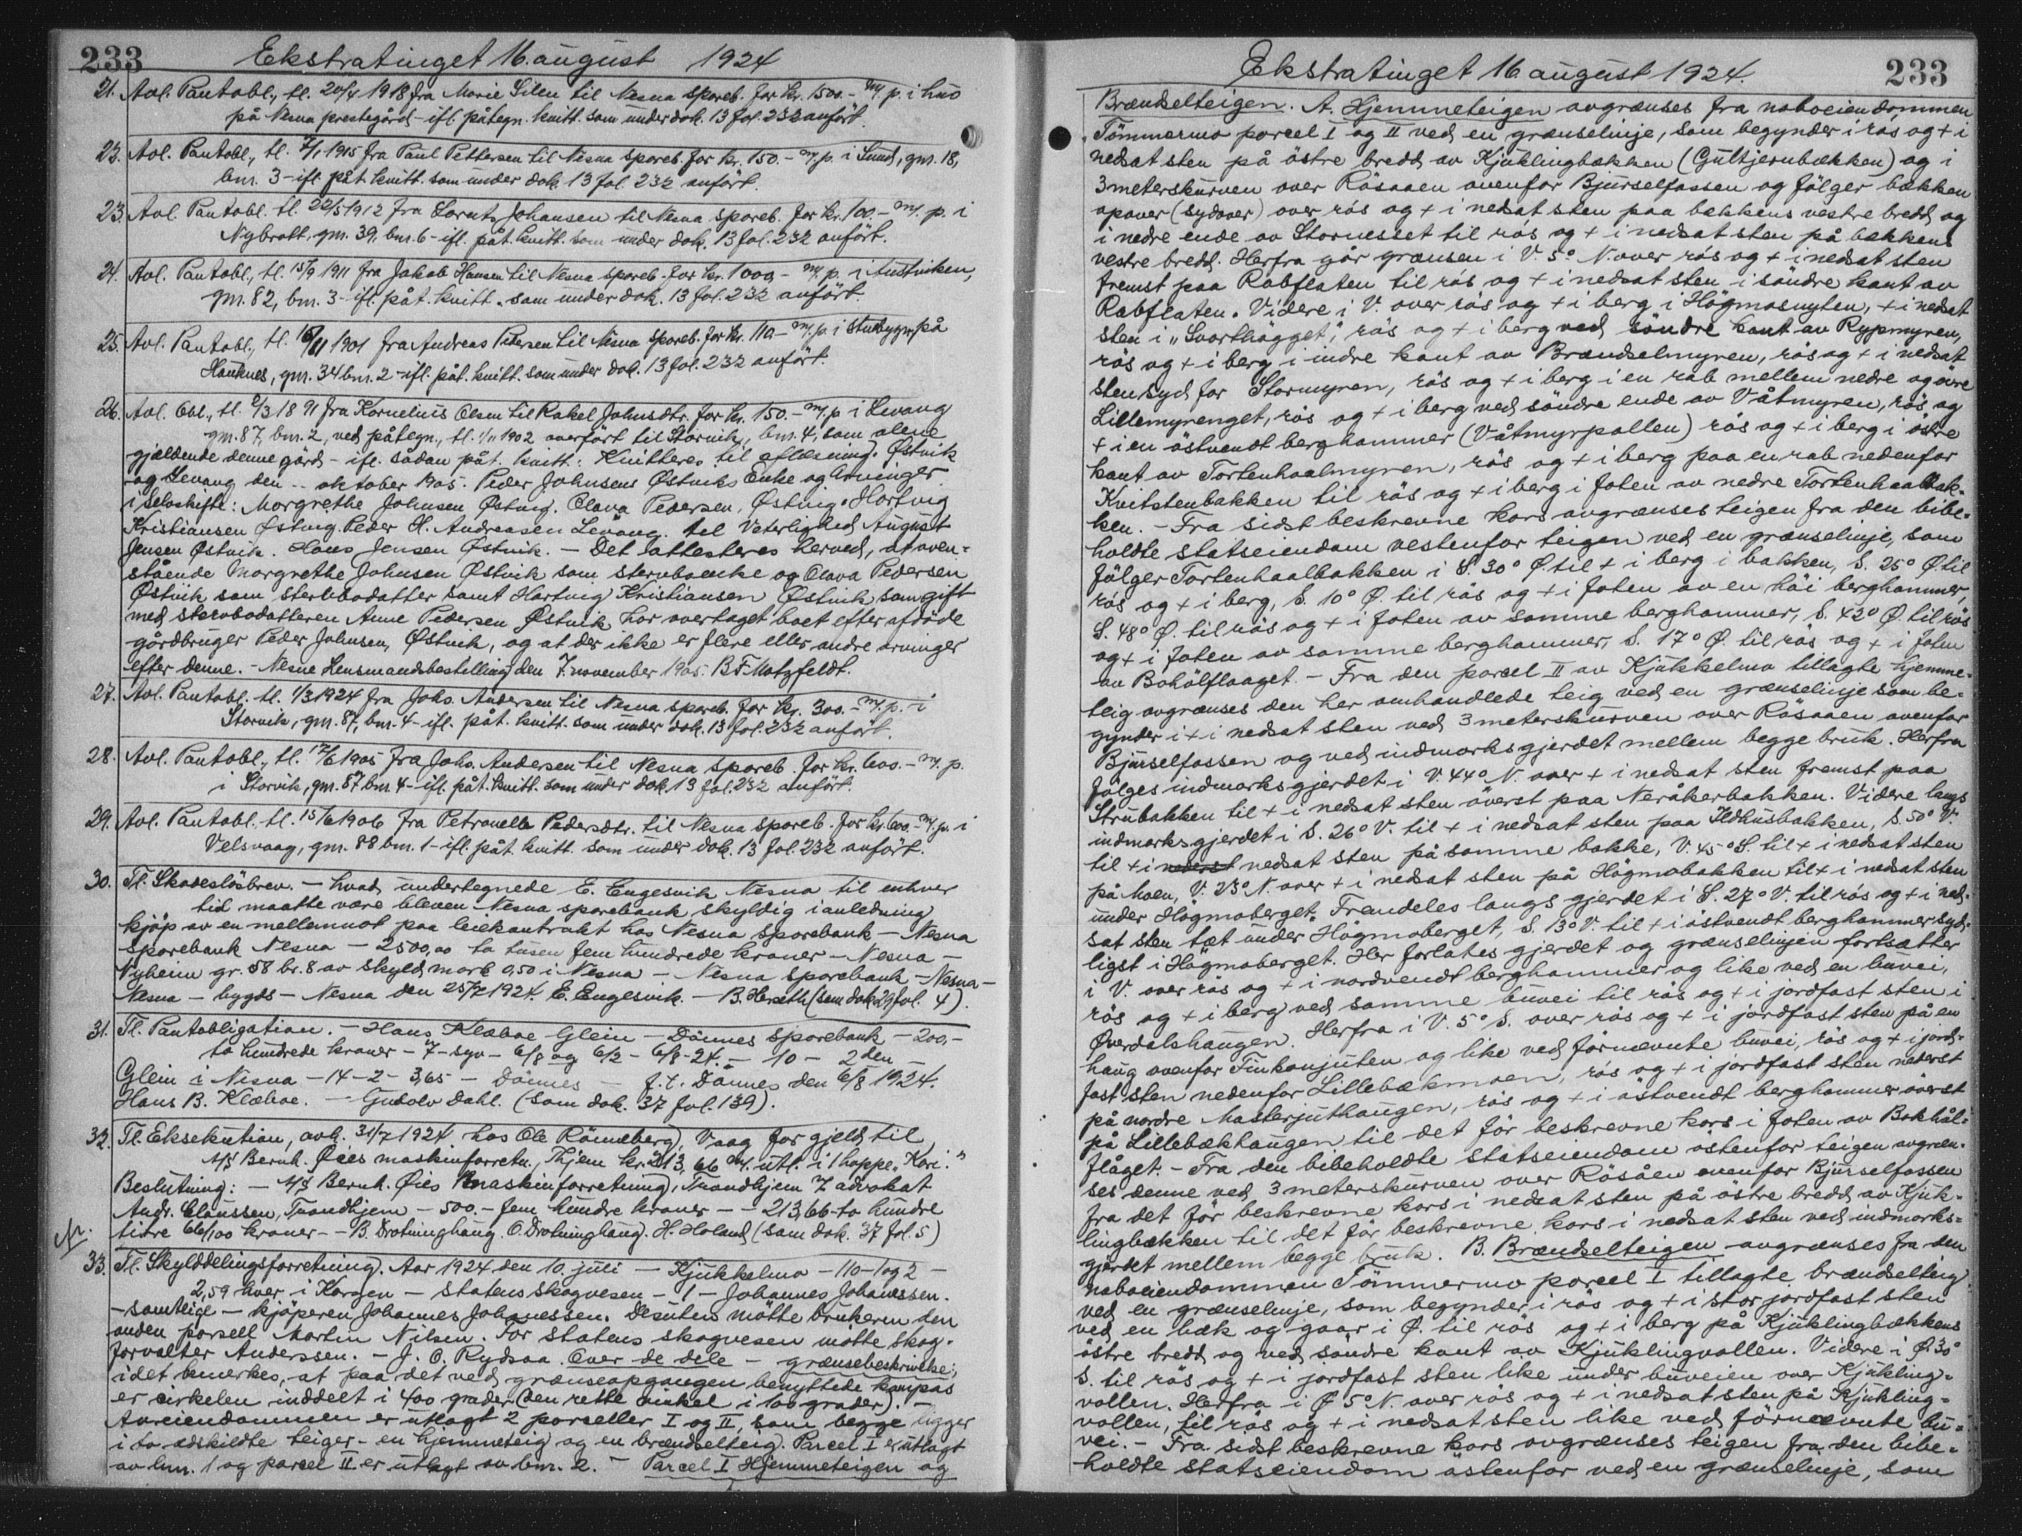 233 Ekstratinget 16. august 1924
21. Avl. Pantobl., tl. 20/4 1918 fra Marie Silen til Nesna spareb. for kr. 1500.- m. p. i hus
på Nesna prestegård - ifl. påtegn. kvitt. som under dok. 13 fol. 232 anført.
23. Avl. Pantobl., tl. 7/1 1915 fra Paul Pettersen til Nesna spareb. for kr. 150.- m. p. i Sund, gnr. 18,
bnr. 3 - ifl. påt. kvitt. som under dok. 13 fol. 232 anført.
23. Avl. Pantobl. tl. 22/5 1912 fra Lorntz Johansen til Nesna spareb. for kr. 100.- m. p. i
Nybrott, gnr. 39, bnr. 6 - ifl. påt. kvitt. som under dok. 13 fol. 232 anført.
24. Avl. Pantobl., tl. 15/9 1911 fra Jakob Hansen til Nesna spareb. for kr. 1000.- m. p. i
gnr. 82, bnr. 3 - ifl. påt. kvitt. som under dok. 13 fol. 232 anført.
25. Avl. Pantobl., tl. 1901 fra Andreas Petersen til Nesna spareb. for kr. 110.- m. p. i stuebygn. på
Hauknes, gnr. 34 bnr. 2 - ifl. påt. kvitt. som under dok. 13 fol. 232 anført.
26. Avl. Obl., tl. 2/3 1891 fra Kornelius Olsen til Rakel Johnsdtr. for kr. 150.- m. p. i Levang
gnr. 87, bnr. 2, ved påtegn., tl. 1/11 1902 overført til Storvik, bnr. 4, som alene
gjældende denne gård - ifl. sådan påt. kvitt.: Kvitteres til aflæsning. Østvik
og Levang den .. oktober 1905. Peder Johnsens Østviks Enke og Arvinger
i selvskifte: Morgrethe Johnsen Østvig. Olava Pedersen, Østvig. Hartvig
Kristiansen Østvig. Peder H. Andreasen Levang. Til Veterlighed August
Jensen Østvik. Hans Jensen Østvik. - Det attesteres herved, at oven-
stående Margrethe Johnsen Østvik som stervboenke og Olava Pedersen
Østvik som stervbodatter samt Hartvig Kristiansen Østvik som gift
med stervbodatteren Anne Pedersen Østvik har overtaget boet efter afdøde
gårdbruger Peder Johnsen, Østvik, og at der ikke er flere eller andre arvinger
efter denne. - Nesne Lensmandsbestilling den 7 november 1905. B. F. Motzfeldt.
27. Avl. Pantobl. tl. 1/3 1924 fra Johs. Andersen til Nesna spareb. for kr. 300.- m. p. i
Storvik, gnr. 87, bnr. 4 - ifl. påt. kvitt. som under dok. 13 fol. 232 anført.
28. Avl. Pantobl., tl. 17/6 1905 fra Johs. Andersen til Nesna spareb. for kr. 600.- m. p.
i Storvik, gnr. 87 bnr. 4 - ifl. påt. kvitt. som under dok. 13 fol. 232 anført.
29. Avl. Pantobl. tl. 15/6 1906 fra Petronelle Pedersdtr. til Nesna spareb. for kr. 600.- m. p. i
Velsvaag, gnr. 88 bnr. 1 - ifl. påt. kvitt. som under dok. 13 fol. 232 anført.
30. Tl. Skadesløsbrev. - hvad undertegnede E. Engesvik Nesna til enhver
tid maatte være bleven Nesna sparebank skyldig i anledning
kjøp av en mellemnot paa leiekontrakt hos Nesna sparebank - Nesna
sparebank Nesna - 2500,00 to tusen fem hundrede kroner - Nesna -
Nyheim gr. 58 br. 8 av skyld mark 0,50 i Nesna - Nesna sparebank - Nesna -
Nesna - bygds - Nesna den 25/7 1924. E. Engesvik. - B. Horseth (som dok 29 fol. 4).
31. Tl. Pantobligation. - Hans Klæboe Glein - Dønnes sparebank - 200,-
to hundrede kroner - 7 - syv - 6/8 og 6/2 - 6/8-24. - 10 - 2den -
Glein i Nesna - 14 - 2 - 3,65 - Dønnes - f. t. Dønnes den 6/8 1924.
Hans B. Klæboe. - Gudolv Dahl. (som dok. 37 fol. 139).
32. Tl. Eksekution, avh. 31/7 1924 hos Ole Rønneberg, Vaag for gjeld til
A/S Bernh. Øies maskinforretn., Thjem kr. 213,66 m. utl. i 1 hoppe „Kari.“
Beslutning: - A/S Bernh. Øies Maskinforretning, Trondhjem 7 advokat
Andr. Claussen, Trondhjem - 500.- fem hundre kroner - - 213,66 - to hundre
titre 66/100 kroner - - B. Drotninghaug. O. Drotninghaug. H. Holand (som dok. 37 fol. 5)
33. Tl. Skylddelingsforretning. Aar 1924 den 10. juli - Kjukkelmo - 110 - 1 og 2 -
2,59 hver i Korgen - Statens skogvesen - 1 - Johannes Johanessen.
- samtlige - kjøperen Johannes Johannessen. Desuten møtte brukeren den
anden parsell Martin Nilsen. For statens skogvesen møtte skog-
forvalter Anderssen. - J. O. Rydsaa. Over de dele - grænsebeskrivelse;
idet bemerkes, at paa det ved grænseopgangen benyttede kompas
er cirkelen inddelt i 400 grader (den rette vinkel i 100 grader). -
Av eiendommen er utlagt 2 parseller I og II, som begge ligger
i to adskildte teiger - en hjemmeteig og en brændselteig. Parcel I er utlagt
av bnr. 1 og parcel II er utlagt av bnr. 2. - Parcel I Hjemmeteigen og
Ekstratinget 16 august 1924. 233
Brændselteigen. A. Hjemmeteigen avgrænses fra naboeiendommen
Tømmermo parcel I og II ved en grænselinje, som begynder i røs og + i
nedsat sten på östre bredd av Kjuklingbækken (Gultjernbækken) og i
3meterskurven over Røsaaen ovenfor Bjurselfossen og følger bækken
opover (sydover) over røs og + i nedsat sten paa bækkens vestre bredd og
i nedre ende av Stornesset til røs og + i nedsat sten på bækkens
vestre bredd. Herfra går grænsen i V. 5° N. over røs og + i nedsat sten
fremst paa Rabflaten til røs og + i nedsat sten i søndre kant av
Rabflaten. Videre i V. over røs og + i berg i Högmosnyten, + i nedsat
sten i „Svarthögget“, røs og + i berg ved söndre kant av Rypmyren,
røs og + i berg i indre kant av Brændselmyren, røs og + i nedsat
sten syd for Stormyren, røs og + i berg i en rab mellem nedre og övre
Lillemyrenget, røs og + i berg ved söndre ende av Våtmyren, røs og
+ i en östvendt berghammer (Våtmyrpallen) røs og + i berg i östre
kant av Tortenhaalmyren, røs og + i berg paa en rab nedenfor
Kvitstenbakken til røs og + i berg i foten av nedre Tortenhaalbak-
ken. - Fra sidst beskrevne kors avgrænses teigen fra den bibe-
holdte statseiendom vestenfor teigen ved en grænselinje, som
følger Tortenhaalbakken i S. 30° Ø. til + i berg i bakken, S. 25° Ø. til
røs og + i berg, S. 10° Ø. til røs og + i foten av en höi berghammer
S. 48° Ø. til røs og + i foten av samme berghammer, S. 42° Ø. til røs
og + i foten av samme berghammer, S. 17° Ø. til røs og + i foten
av Bohölflaaget. - Fra den parcel II av Kjukkelmo tillagte hjemme-
teig avgrænses den her omhandlede teig ved en grænselinje som be-
gynder i + i nedsat sten ved 3meterskurven over Røsaaen ovenfor
Bjurselfossen og ved indmarksgjerdet mellem begge bruk. Herfra
følges indmarksgjerdet i V. 44° N. over + i nedsat sten fremst paa
Strubakken til + i nedsat sten överst paa Neråkerbakken. Videre langs
indmarksgjerdet i S. 26° V. til + i nedsat sten paa Ildhusbakken, S. 50° V.
til + i nedsat sten på samme bakke, V. 45° S. til + i nedsat sten
på Moen, V. 23° N. over + i nedsat sten på Högmobakken til + i nedsat sten
under Högmoberget. Fremdeles langs gjerdet i S. 27° V. til røs og + i ned-
sat sten tæt under Högmoberget, S. 13° V. til + i östvendt berghammer syd-
ligst i Högmoberget. Her forlates gjerdet og grænselinjen fortsætter
i V. over røs og + i nordvendt berghammer og like ved en buvei,
røs og + i berg ved samme buvei til røs og + i jordfast sten i
Øverdalshaugen. Herfra i V. 5° S. over røs og + i jordfast sten på en
haug ovenfor Finkonjuten og like ved førnævnte buvei, røs og + i jord-
fast sten nedenfor Lillebækmoen, røs og + i jordfast sten nederst
på nordre Masterjuthaugen, røs og + i östvendt berghammer överst
på Lillebækhaugen til det för beskrevne kors i foten av Bokhöl-
flåget. - Fra den bibeholdte statseiendom østenfor teigen avgræn-
ses denne ved 3meterskurven over Røsåen ovenfor Bjurselfossen
fra det för beskrevne kors i nedsat sten på östre bredd av Kjuk-
lingbækken til det för beskrevne kors i nedsat sten ved indmarks-
gjerdet mellem begge bruk. B. Brændselteigen avgrænses fra den
naboeiendommen Tömmermo parcel I tillagte brændselteig
ved en grænselinje, som begynder i røs og + i stor jordfast sten
ved en bæk og gaar i Ø. til røs og + i berg på Kjuklingbækkens
östre bredd og ved söndre kant av Kjuklingvollen. Videre i Ø. 30°
S. til røs og + i jordfast sten like under buveien over Kjukling-
vollen. Herfra i Ø 5° N. over røs og + i nedsat sten på Kjukling-
vollen, til røs og + i nedsat sten like ved förnævnte bu-
vei. - Fra sidst beskrevne kors avgrænses teigen fra den bibe-
holdte statseiendom östenfor ved en grænselinje, som